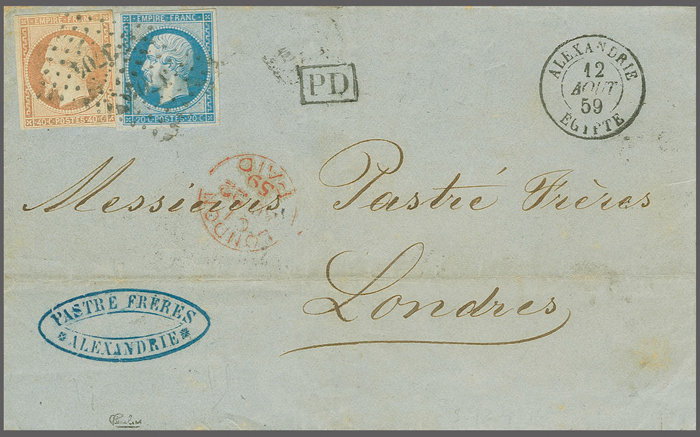 EMPIRE FRANC
40 C. POSTES 40 C.
EMPIRE FRANC.
20 C. POSTES 20 C.
PD
ALEXANDRIE
12
AOUT
59
EGIPTE
LONDON
59
PAID
Messieurs Pastré Frères
Londres
PASTRE FRÈRES
ALEXANDRIE